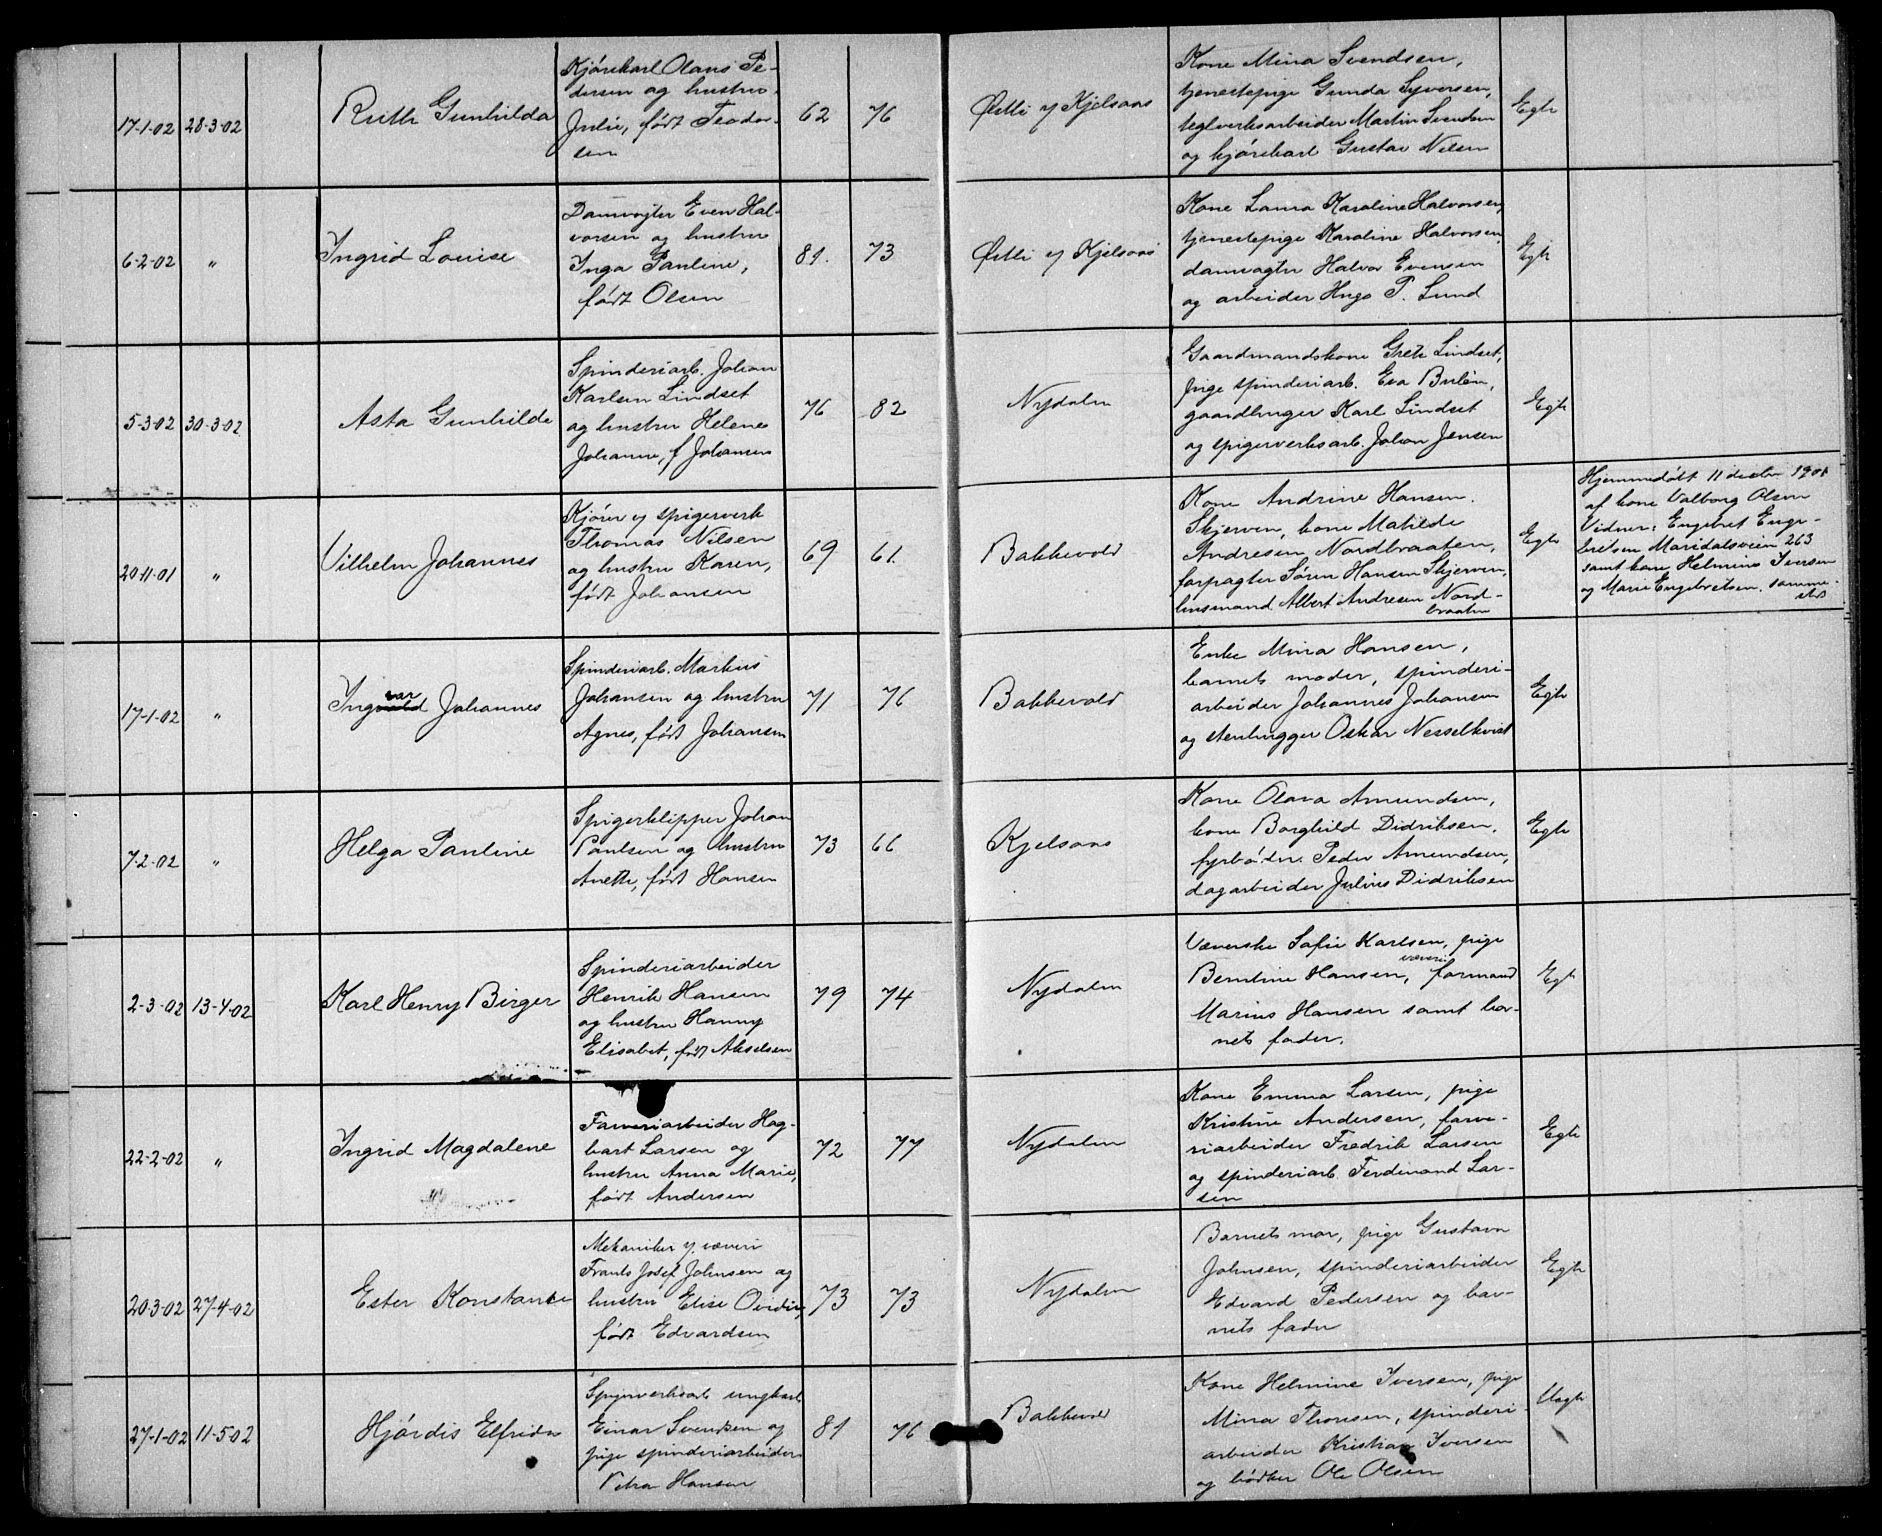 17-1-02 28-3-02
Ruth Gunhilda
Kjørekarl Olaus Pe-
dersen og hustru
Julie, født Teodor-
sen
62 76
Østli y Kjelsaas
Kone Mina Svendsen,
tjenestepige Gunda Syversen,
teglverksarbeider Martin Svendsen
og kjørekarl Gustav Nilsen
Egte
6-2-02 "
Ingrid Louise
Damvogter Even Hal-
vorsen og hustru
Inga Pauline,
født Olsen
81. 73
Østli y Kjelsaas
Kone Laura Karoline Halvorsen,
tjenestepige Karoline Halvorsen,
damvogter Halvor Evensen
og arbeider Hugo P. Lund
Egte
5-3-02 30-3-02
Asta Gunhilde
Spinderiarb. Johan
Karlsen Lindset
og hustru Helene
Johanne, f Johansen
76 82
Nydalen
Gaardmandskone Grete Lindset,
pige spinderiarb. Eva Bulën,
gaardbruger Karl Lindset
og spigerverksarb. Johan Jensen
Egte
20-11-01 "
Vilhelm Johannes
Kjører y spigerverk
Thomas Nilsen
og hustru Karen,
født Johansen
69 61.
Bakkevold
Kone Andrine Hansen
Skjerven, kone Matilde
Andresen Nordbraaten,
forpagter Søren Hansen Skjerven,
husmand Albert Andresen Nord-
braaten
Egte
Hjemmedøbt 11 decbr 1901
af kone Valborg Olsen
Vidner: Engebret Enge-
bretsen Maridalsveien 263
samt kone Helmine Iversen
og Marie Engebretsen, samme-
sted
17-1-02 "
var
Ingvald Johannes
Spinderiarb. Markus
Johansen og hustru
Agnes, født Johansen
71 76
Bakkevold
Enke Mina Hansen,
barnets moder, spinderi-
arbeider Johannes Johansen
og stenhugger Oskar Nesselkvist
Egte
7-2-02 "
Helga Pauline
Spigerklipper Johan
Paulsen og hustru
Anette, født Hansen
73 66
Kjelsaas
Kone Olava Amundsen,
kone Borghild Didriksen,
fyrbøder Peder Amundsen,
dagarbeider Julius Didriksen
Egte
2-3-02 13-4-02
Karl Henry Birger
Spinderiarbeider
Henrik Hansen
og hustru Hanny
Elisabet, født Akselsen
79 74
Nydalen
Væverske Sofie Karlsen, pige
Berntine Hansen, væveri formand
Marius Hansen samt bar-
nets fader.
Egte
22-2-02 "
Ingrid Magdalene
Farveriarbeider Hag-
bart Larsen og
hustru Anna Marie,
født Andersen
72 77
Nydalen
Kone Emma Larsen, pige
Kristine Andersen, farve-
riarbeider Fredrik Larsen
og spinderiarb. Ferdinand Lar-
sen
Egte
20-3-02 27-4-02
Ester Konstanse
Mekaniker y. væveri
Frants Josef Johnsen og
hustru Elise Ovidia,
født Edvardsen
73 73
Nydalen
Barnets mor, pige Gustava
Johnsen, spinderiarbeider
Edvard Pedersen og bar-
nets fader
Egte
27-1-02 11-5-02
Hjørdis Elfrida
Spigerverksarb ungkarl
Einar Svendsen og
pige spinderiarbeider
Petra Hansen
81 76
Bakkevold
Kone Helmine Iversen, pige
Mina Thonsen, spinderi-
arbeider Kristian Iversen
og bødker Ole Olsen
Uegte